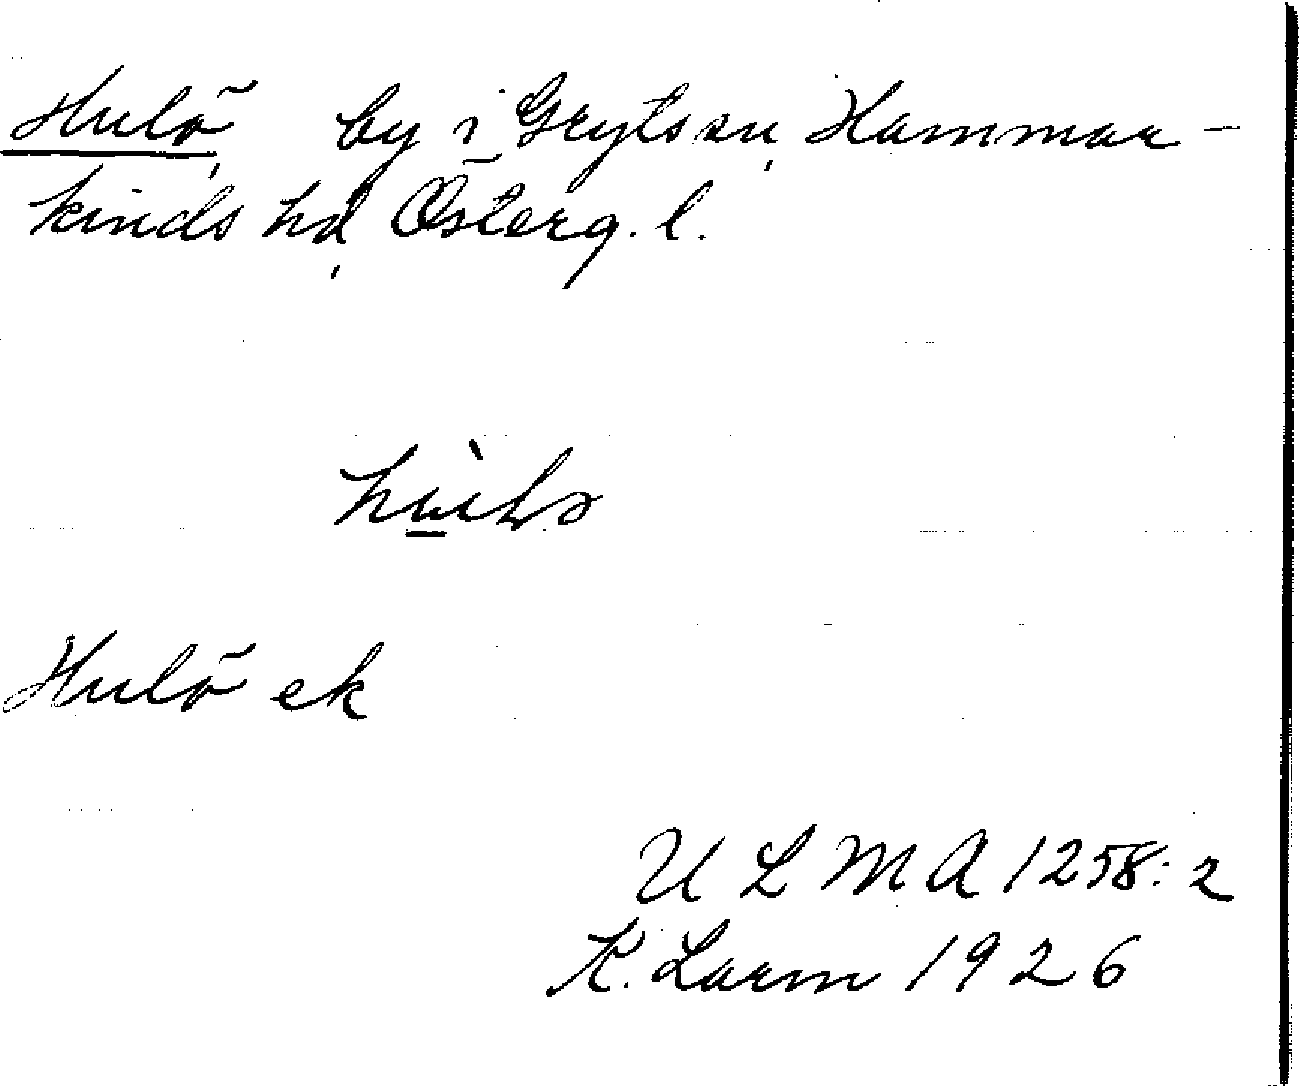 Hulö, by i Gryts sn, Hammar-
kinds hd, Österg. l.
Hulö ek
U L M A 1258:2
K. Larm 1926